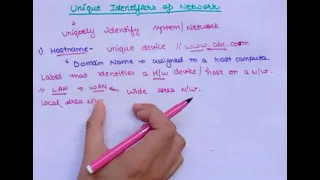 Unique Identifiers of Network
↓
Uniquely identify system/Network
1) Hostname - unique device // www.abc.com
↓
Domain Name → assigned to a host computer.
Label that identifies a H/w device / host on a N/w.
→ LAN → WAN ← wide area N/w.
local area N/w